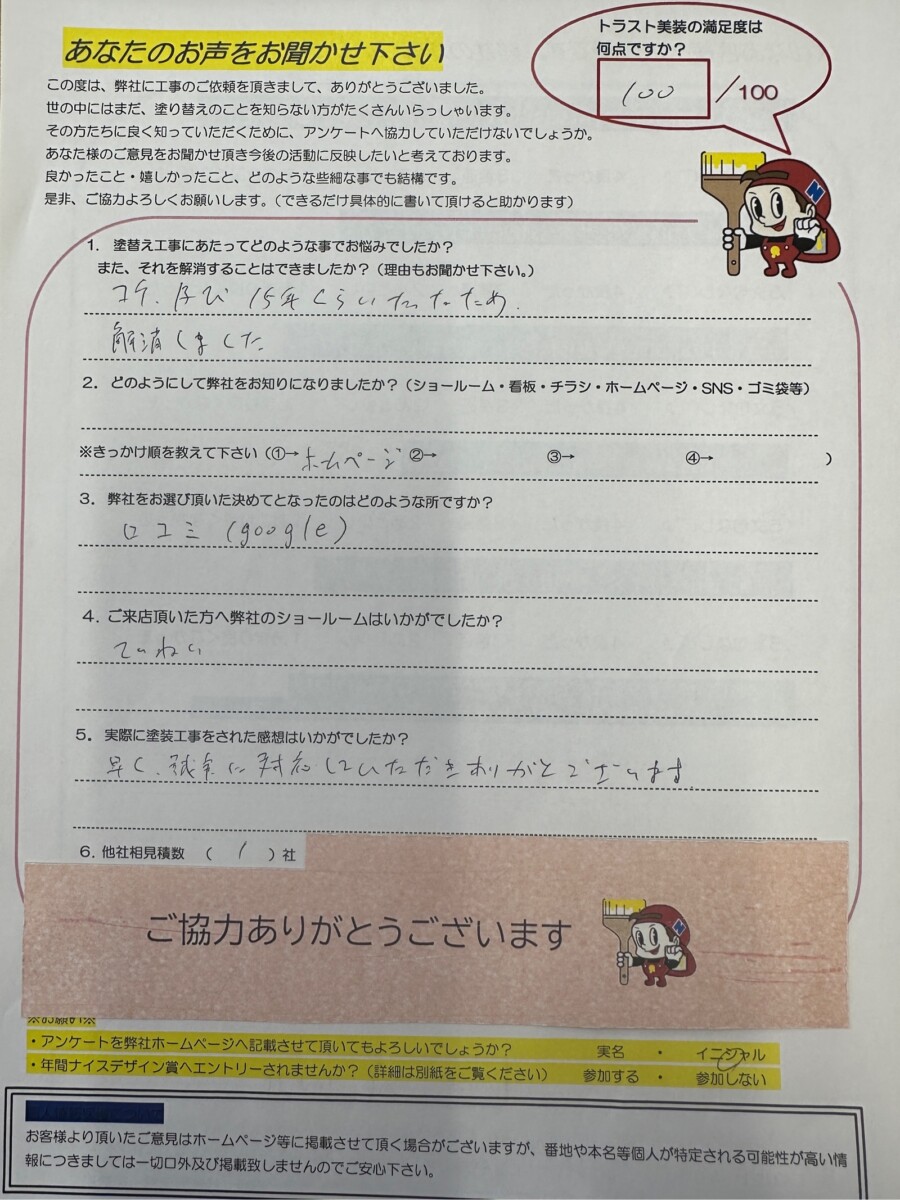 あなたのお声をお聞かせ下さい
トラスト美装の満足度は
何点ですか？
100 ／100
この度は、弊社に工事のご依頼を頂きまして、ありがとうございました。
世の中にはまだ、塗り替えのことを知らない方がたくさんいらっしゃいます。
その方たちに良く知っていただくために、アンケートへ協力していただけないでしょうか。
あなた様のご意見をお聞かせ頂き今後の活動に反映したいと考えております。
良かったこと・嬉しかったこと、どのような些細な事でも結構です。
是非、ご協力よろしくお願いします。（できるだけ具体的に書いて頂けると助かります）
N
1．塗替え工事にあたってどのような事でお悩みでしたか？
また、それを解消することはできましたか？（理由もお聞かせ下さい。）
コケ、及び 15年くらいたったため.
解消しました
2．どのようにして弊社をお知りになりましたか？（ショールーム・看板・チラシ・ホームページ・SNS・ゴミ袋等）
※きっかけ順を教えて下さい（①→ホームページ ②→ ③→ ④→ ）
3．弊社をお選び頂いた決めてとなったのはどのような所ですか？
口コミ (google)
4．ご来店頂いた方へ弊社のショールームはいかがでしたか？
ていねい
5．実際に塗装工事をされた感想はいかがでしたか？
早く、誠実に対応していただきありがとうございます.
6．他社相見積数 （ 1 ）社
ご協力ありがとうございます
N
※お願い※
・アンケートを弊社ホームページへ記載させて頂いてもよろしいでしょうか？ 実名 ・ イニシャル
・年間ナイスデザイン賞へエントリーされませんか？（詳細は別紙をご覧ください） 参加する ・ 参加しない
お客様より頂いたご意見はホームページ等に掲載させて頂く場合がございますが、番地や本名等個人が特定される可能性が高い情
報につきましては一切口外及び掲載致しませんのでご安心下さい。